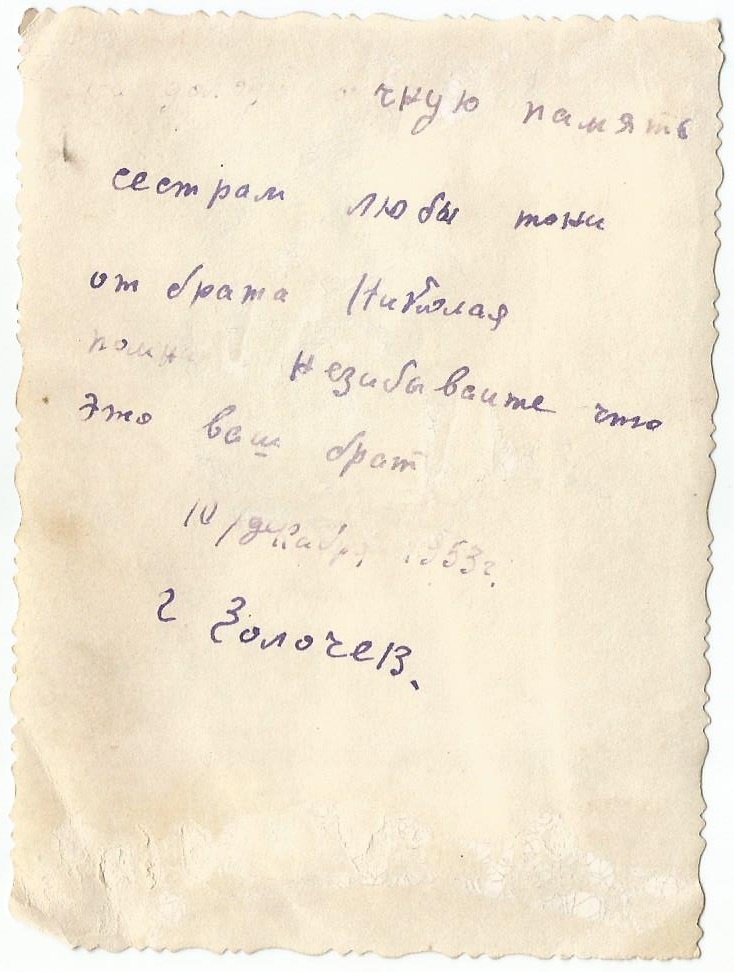 чную память
сестрам любы тони
от брата Николая
помни незибывайте что
это ваш брат
10/декабря 1953г.
г Золочев.